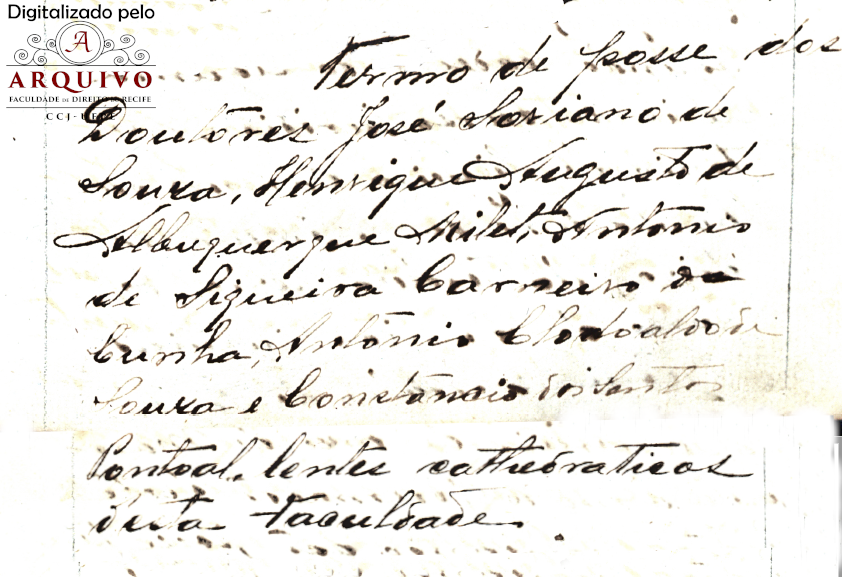 Digitalizado pelo
A
ARQUIVO
FACULDADE DE DIREITO DO RECIFE
CCJ-UFPE
Termo de posse dos
Doutores José Soriano de
Souza, Henrique Augusto de
Albuquerque Milet, Antonio
de Siqueira Carneiro da
Cunha, Antonio Clodoaldo de
Souza e Constancio dos Santos
Pontoal, lentes cathedraticos
desta Faculdade.